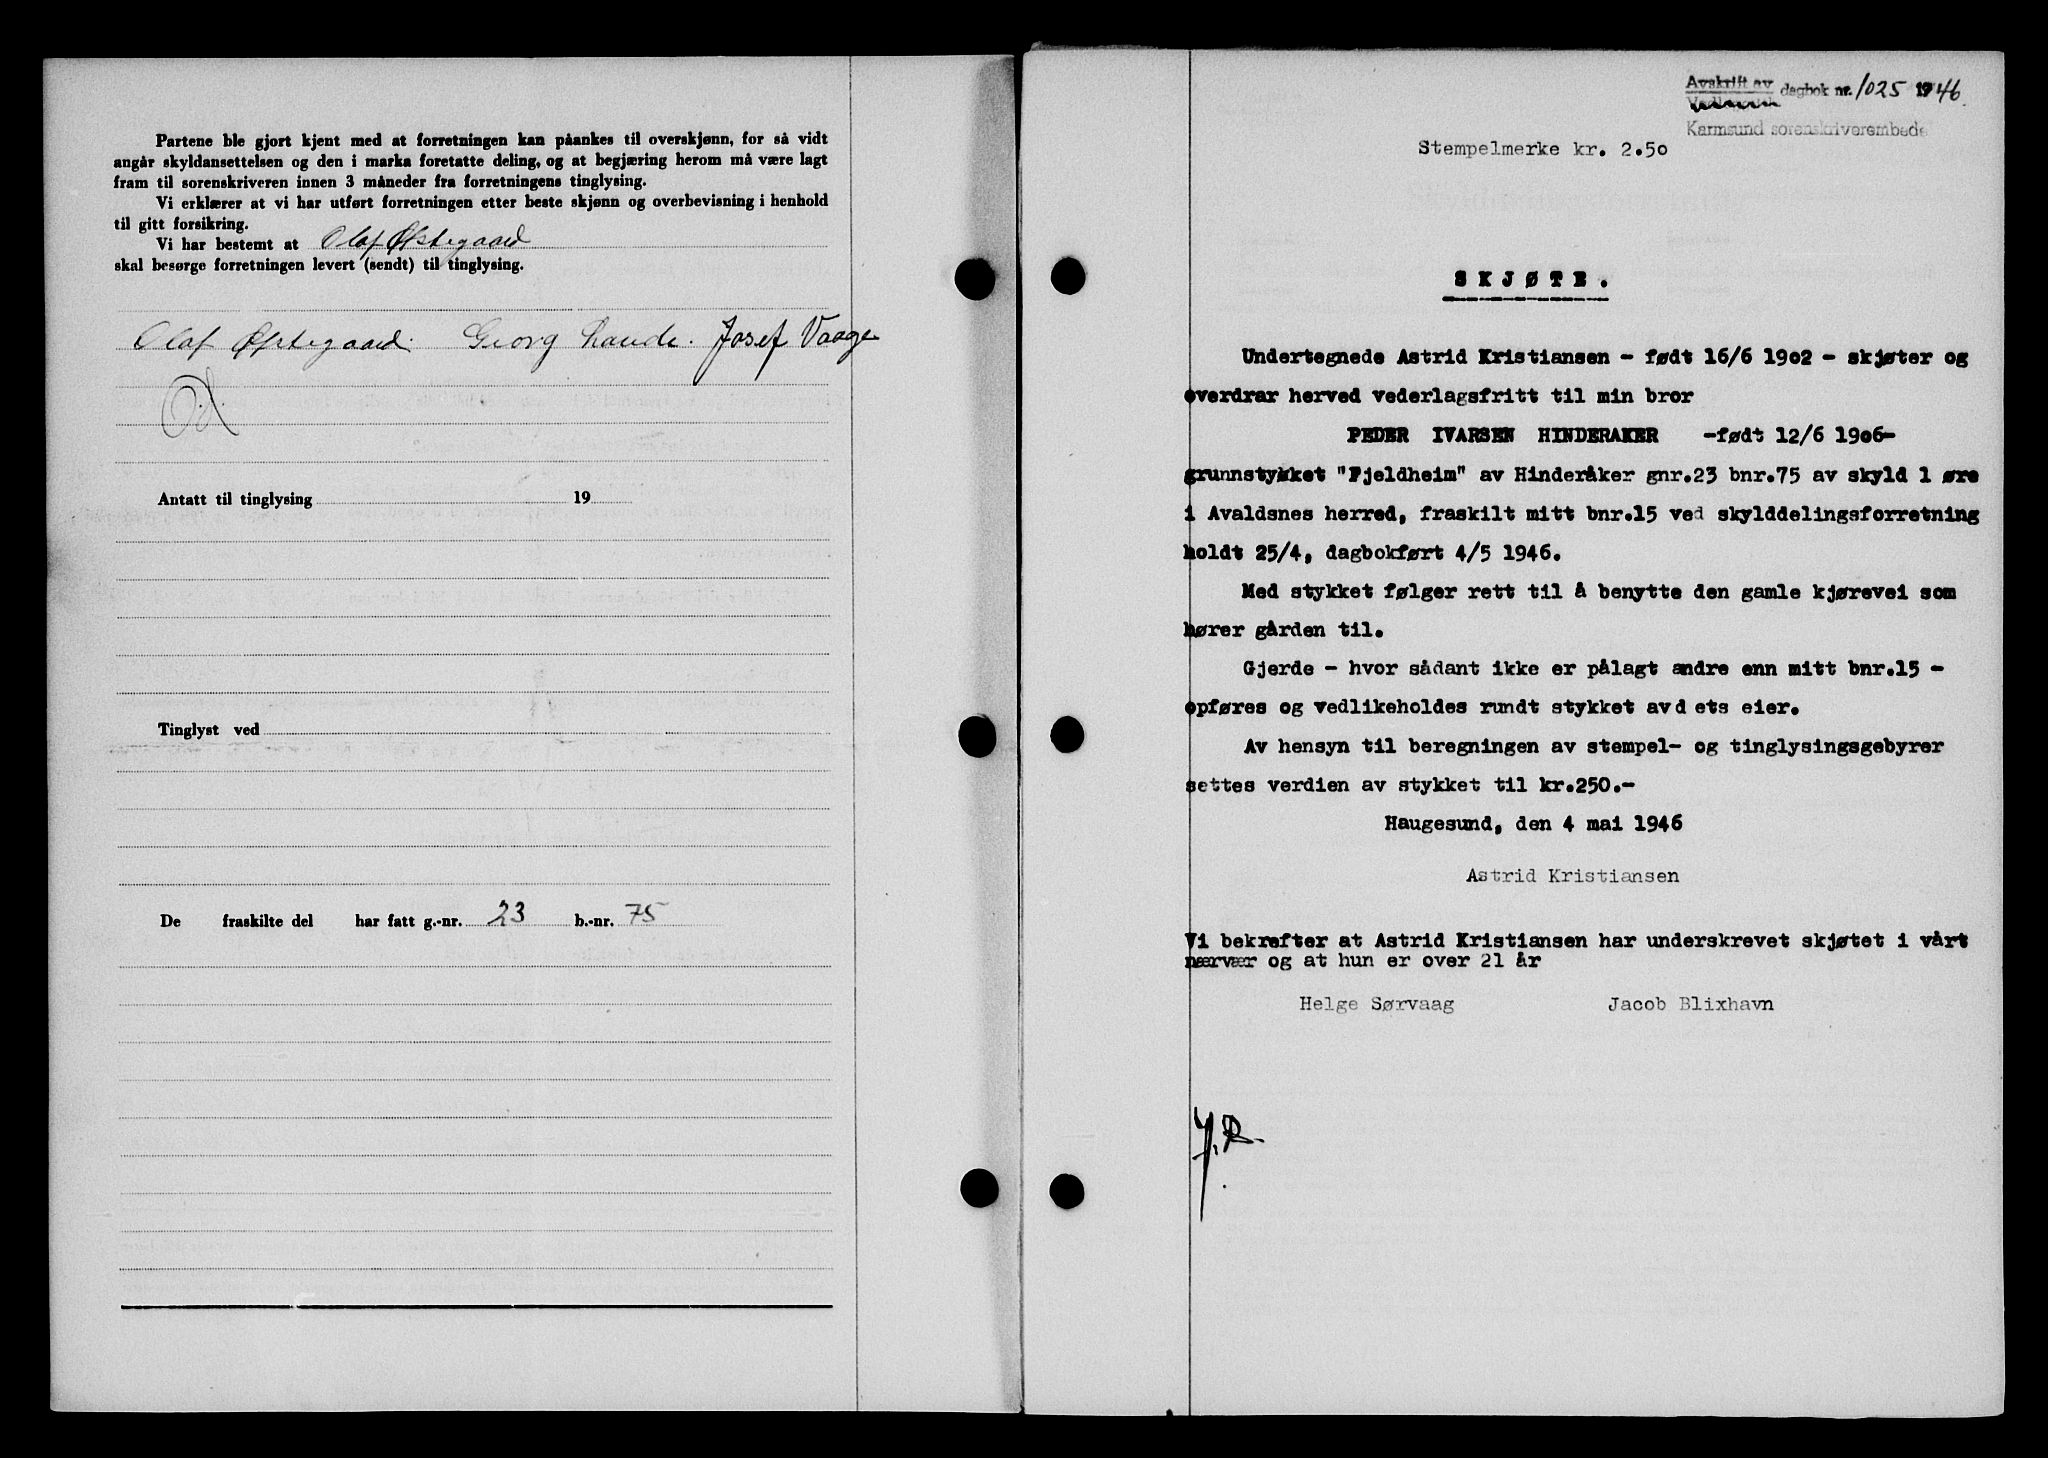 Partene ble gjort kjent med at forretningen kan påankes til overskjønn, for så vidt
angår skyldansettelsen og den i marka foretatte deling, og at begjæring herom må være lagt
fram til sorenskriveren innen 3 måneder fra forretningens tinglysing.
Vi erklærer at vi har utført forretningen etter beste skjønn og overbevisning i henhold
til gitt forsikring.
Vi har bestemt at Olaf Østegaard
skal besørge forretningen levert (sendt) til tinglysing.
Olaf Østegaard. Georg Lande. Josef Vaage
Antatt til tinglysing 19
Tinglyst ved
De fraskilte del har fatt g.-nr. 23 b.-nr. 75
Avskrift av
Vedlegg dagbok nr. 1025 1946.
Karmsund sorenskriverembede
Stempelmerke kr. 2.50
SKJØTE.
Undertegnede Astrid Kristiansen - født 16/6 1902 - skjøter og
overdrar herved vederlagsfritt til min bror
PEDER IVARSEN HINDERAKER -født 12/6 1906-
grunnstykket "Fjeldheim" av Hinderåker gnr.23 bnr.75 av skyld 1 øre
i Avaldsnes herred, fraskilt mitt bnr.15 ved skylddelingsforretning
holdt 25/4, dagbokført 4/5 1946.
Med stykket følger rett til å benytte den gamle kjørevei som
hører gården til.
Gjerde - hvor sådant ikke er pålagt andre enn mitt bnr.15 -
opføres og vedlikeholdes rundt stykket avd ets eier.
Av hensyn til beregningen av stempel- og tinglysingsgebyrer
settes verdien av stykket til kr.250.-
Haugesund, den 4 mai 1946
Astrid Kristiansen
Vi bekrefter at Astrid Kristiansen har underskrevet skjøtet i vårt
nærvær og at hun er over 21 år
Helge Sørvaag Jacob Blixhavn